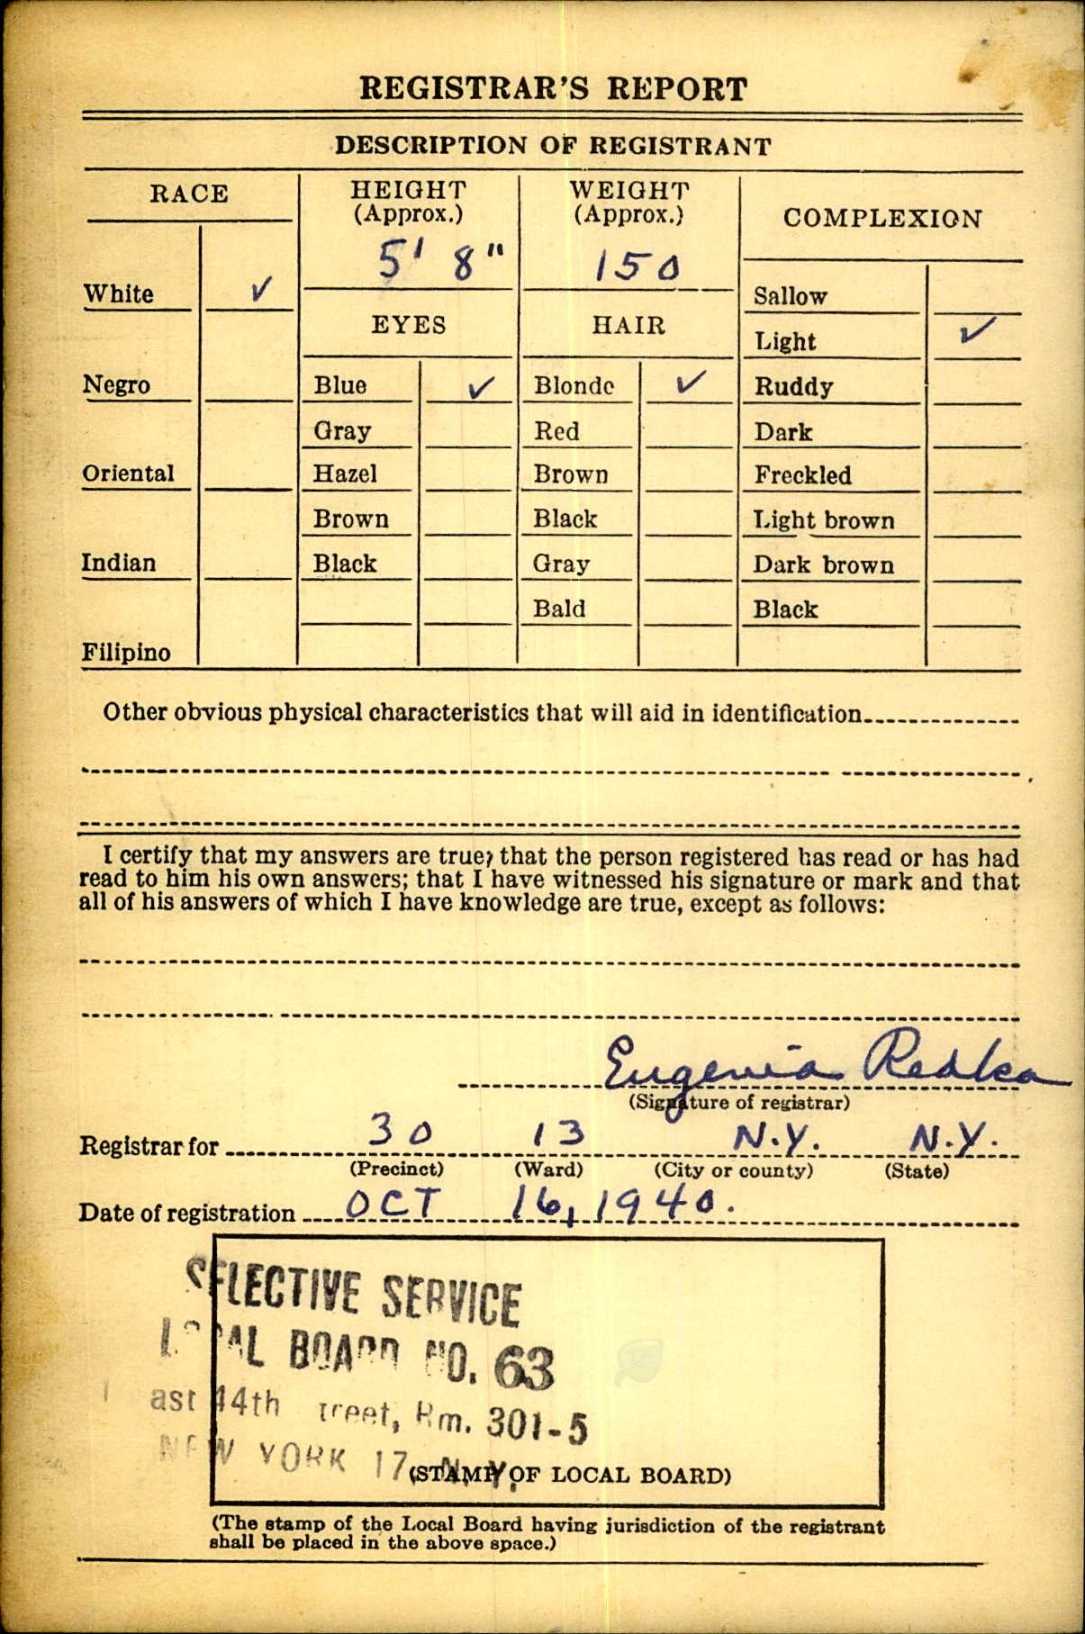 REGISTRAR'S REPORT
DESCRIPTION OF REGISTRANT
RACE
HEIGHT
(Approx.)
WEIGHT
(Approx.)
COMPLEXION
5' 8"
150
White ✓
EYES
HAIR
Sallow
Light ✓
Negro
Blue ✓
Blonde ✓
Ruddy
Gray
Red
Dark
Oriental
Hazel
Brown
Freckled
Brown
Black
Light brown
Indian
Black
Gray
Dark brown
Bald
Black
Filipino
Other obvious physical characteristics that will aid in identification
I certify that my answers are true; that the person registered has read or has had
read to him his own answers; that I have witnessed his signature or mark and that
all of his answers of which I have knowledge are true, except as follows:
Eugenia Redka
(Signature of registrar)
Registrar for 30 13 N.Y. N.Y.
(Precinct) (Ward) (City or county) (State)
Date of registration OCT 16, 1940.
SELECTIVE SERVICE
LOCAL BOARD NO. 63
ast 44th treet, Rm. 301-5
NEW YORK 17, N. Y.
(STAMP OF LOCAL BOARD)
(The stamp of the Local Board having jurisdiction of the registrant
shall be placed in the above space.)